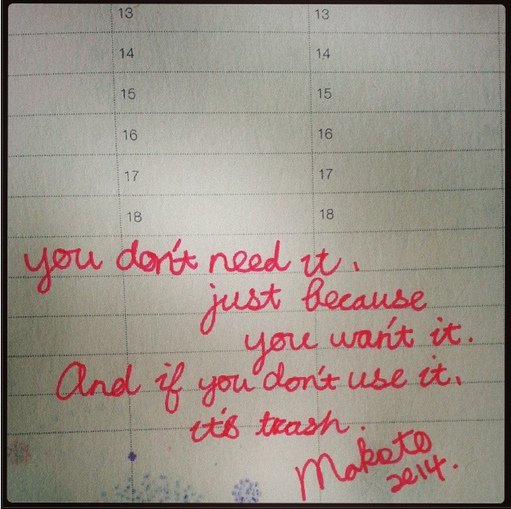 13 13
14 14
15 15
16 16
17 17
18 18
you don't need it.
just because
you wan't it.
And if you don't use it.
it's trash.
Makoto
2014.